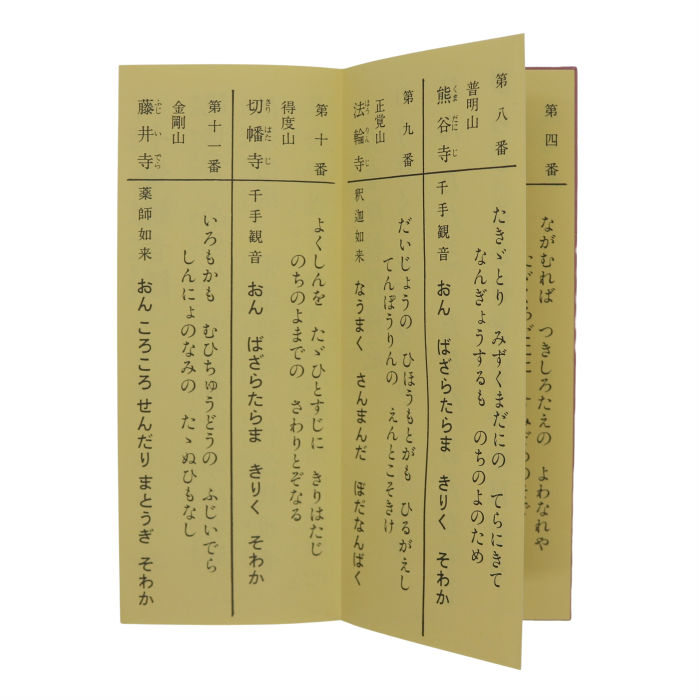 第四番
ながむれば つきしろたえの よわなれや
第八番
普明山
くま だに じ
熊谷寺
たきゞとり みずくまだにの てらにきて
なんぎょうするも のちのよのため
千手観音 おん ばざらたらま きりく そわか
第九番
正覚山
ほう りん じ
法輪寺
だいじょうの ひほうもとがも ひるがえし
てんぽうりんの えんとこそきけ
釈迦如来 なうまく さんまんだ ぼだなんばく
第十番
得度山
きり はた じ
切幡寺
よくしんを たゞひとすじに きりはたじ
のちのよまでの さわりとぞなる
千手観音 おん ばざらたらま きりく そわか
第十一番
金剛山
ふじ い でら
藤井寺
いろもかも むひちゅうどうの ふじいでら
しんにょのなみの たゝぬひもなし
薬師如来 おん ころころ せんだり まとうぎ そわか